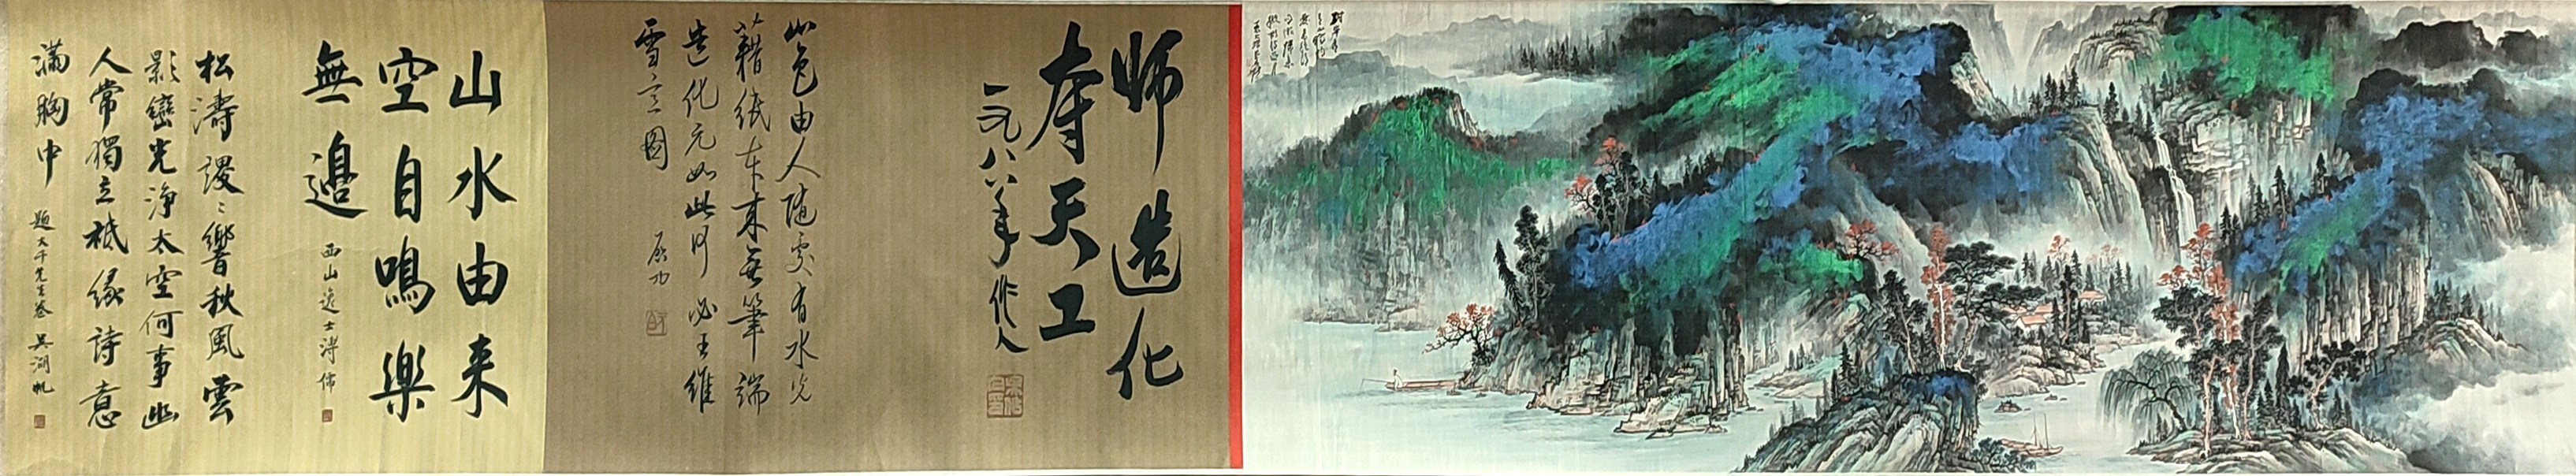 师造化
夺天工
一九八八年 作人
山色由人随處有水光
藉紙本来無筆端
造化元如此何必王維
雪意圖 启功
山水由来
空自鳴樂
無邊
西山逸士溥儒
松濤謖〻響秋風雲
影巒光淨太空何事幽
人常獨立祗緣詩意
滿胸中 題大千先生卷 吳湖帆